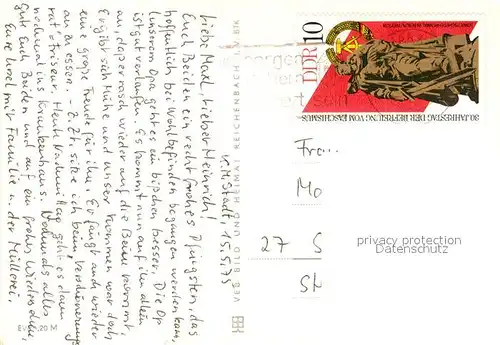 K.-M.-Stadt, 15.5.75
Liebe Marl. Lieber Heinrich!
Euch Beiden ein recht frohes Pfingsten, das
hoffentlich bei Wohlbefinden begangen werden kann.
Unserem Opa geht es ein bißchen besser. Die Op
ist gut verlaufen. Es kommt nun auf ihn allein
an, daß er rasch wieder auf die Beine kommt.
Er gibt sich Mühe und unser Kommen war doch
eine große Freude für ihn. Er fängt auch wieder
an zu essen. - Z. Zt. sitze ich beim Verschönerungs-
rat = Friseur. Heute Nachmittag geht es dann
nochmal ins Krankenhaus. Nochmals alles
Gute Euch Beiden und auf ein frohes Wiedersehen,
Eure Ursel mit Familie u. der Müllerei.
EVP 0,20 M
VEB BILD UND HEIMAT REICHENBACH I. V. BIK
DDR 10
30. JAHRESTAG DER BEFREIUNG VOM FASCHISMUS
Fra...
Mo
27 S
St
privacy protection
Datenschutz